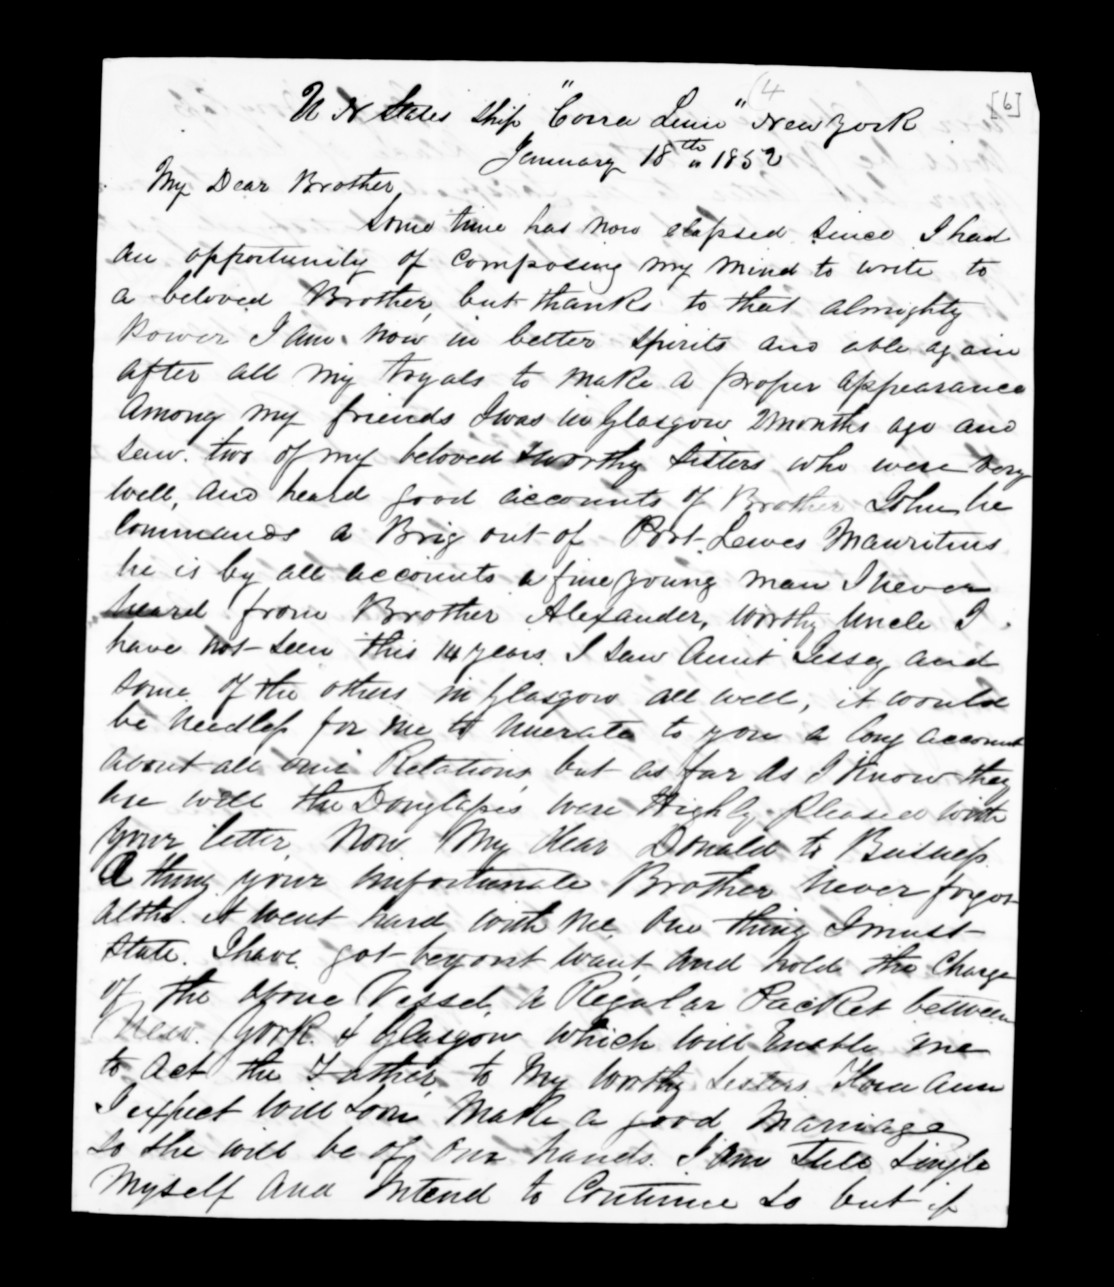 (4
[6]
U N States Ship "Corra Linn" New York
January 18th " 1852
My Dear Brother,
Some time has now elapsed since I had
an opportunity of composing my mind to write to
a beloved Brother, but thanks to that almighty
Power I am now in better spirits and able again
after all my tryals to make a proper appearance
among my friends I was in Glasgow 2 months ago and
saw two of my beloved & worthy Sisters who were very
well, and heard good accounts of Brother John, he
Commands a Brig out of Port Lewes Mauritius
he is by all accounts a fine young man I never
heard from Brother Alexander, Worthy Uncle I
have not seen this 14 years. I saw Aunt Jessey and
some of the others in Glasgow all well, it would
be needless for me to nuerate to you a long account
about all our Relations but as far as I know they
are well the Douglass's were Highly pleased with
your letter. Now My dear Donald to Busness
A thing your unfortunate Brother never forgot
altho it went hard with me. One thing I must
State. I have got beyont want, and hold the Charge
of the above Vessel, a Regular Packet between
New York & Glasgow which will Enable me
to act the Father to My Worthy Sisters. Ann
I expect will soon make a good Marriage
so she will be of our hands. I am still single
Myself and Intend to Continue so but if